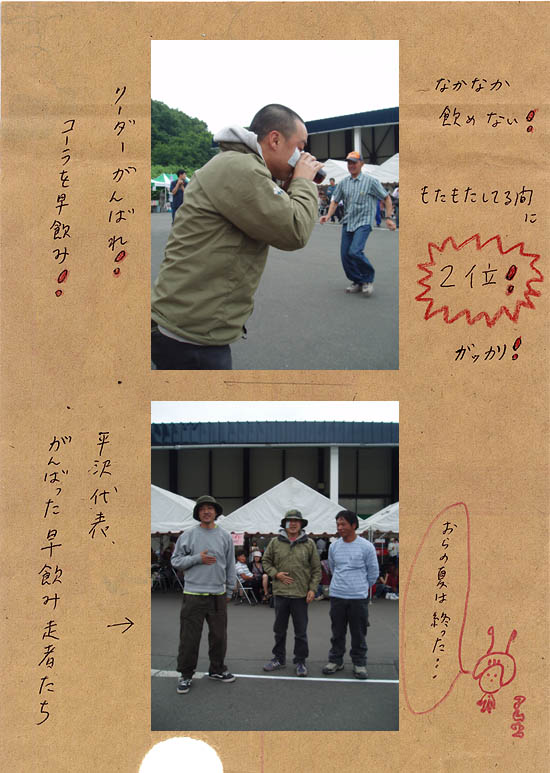 リーダーがんばれ!
コーラを早飲み!
なかなか
飲めない!
もたもたしてる間
に
2位!
ガッカリ!
平沢代表、
がんばった早飲み走者たち
→
おらの夏は終った…